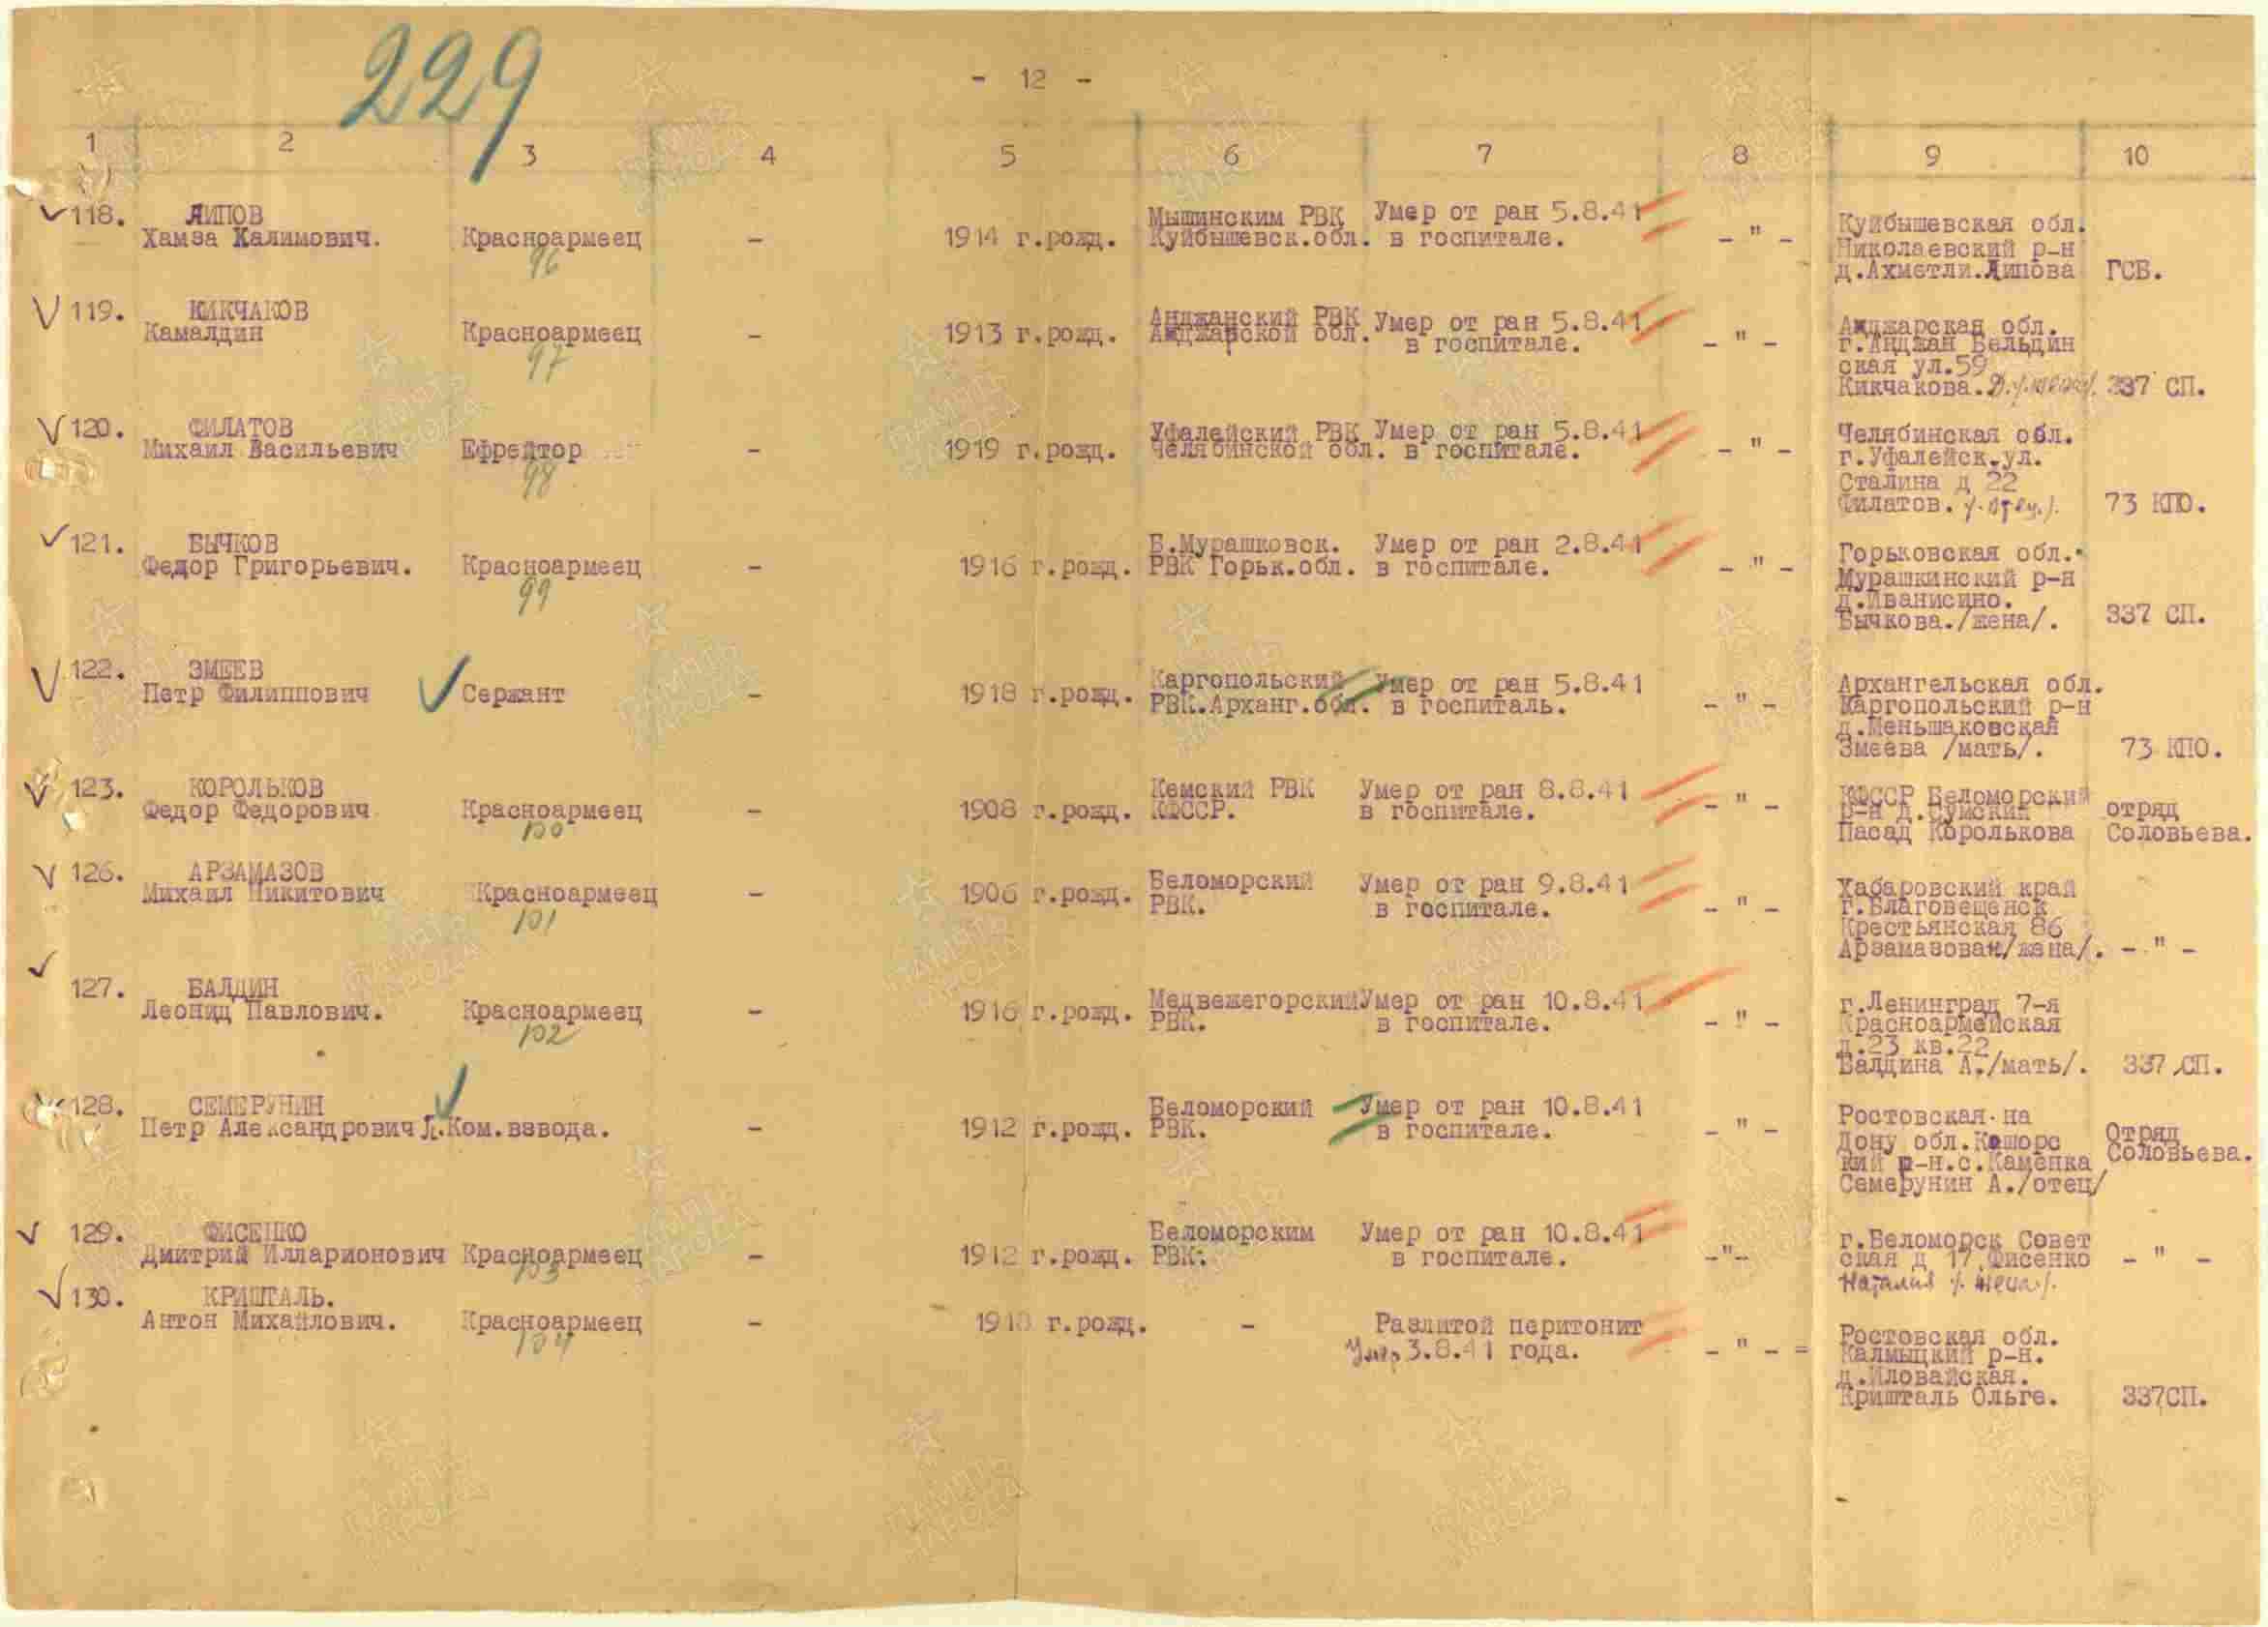 229
- 12 -
1 2 3 4 5 6 7 8 9 10
118. ЛИПОВ
Хамза Халимович. Красноармеец - 1914 г.рожд. Мышинским РВК Куйбышевск.обл. Умер от ран 5.8.41 в госпитале. - " - Куйбышевская обл.
Николаевский р-н
д.Ахметли.Липова ГСБ.
96
119. КИКЧАКОВ
Камалдин Красноармеец - 1913 г.рожд. Анджанский РВК Анджарской обл. Умер от ран 5.8.41 в госпитале. - " - Анджарская обл.
г.Анджан Бельдин
ская ул.59
Кикчакова. 337 СП.
97
120. ФИЛАТОВ
Михаил Васильевич Ефрейтор - 1919 г.рожд. Уфалейский РВК Челябинской обл. Умер от ран 5.8.41 в госпитале. - " - Челябинская обл.
г.Уфалейск.ул.
Сталина д 22
Филатов. /отец./ 73 КПО.
98
121. БЫЧКОВ
Федор Григорьевич. Красноармеец - 1916 г.рожд. Б.Мурашковск. РВК Горьк.обл. Умер от ран 2.8.41 в госпитале. - " - Горьковская обл.
Мурашкинский р-н
д.Иванисино.
Бычкова./жена/. 337 СП.
99
122. ЗМЕЕВ
Петр Филиппович Сержант - 1918 г.рожд. Каргопольский РВК.Арханг.обл. Умер от ран 5.8.41 в госпиталь. - " - Архангельская обл.
Каргопольский р-н
д.Меньшаковская
Змеева /мать/. 73 КПО.
123. КОРОЛЬКОВ
Федор Федорович Красноармеец - 1908 г.рожд. Кемский РВК КФССР. Умер от ран 8.8.41 в госпитале. - " - КФССР Беломорский
р-н д.Сумский
Пасад Королькова отряд Соловьева.
100
126. АРЗАМАЗОВ
Михаил Никитович Красноармеец - 1906 г.рожд. Беломорский РВК. Умер от ран 9.8.41 в госпитале. - " - Хабаровский край
г.Благовещенск
Крестьянская 86
Арзамазован/жена/. - " -
101
127. БАЛДИН
Леонид Павлович. Красноармеец - 1916 г.рожд. Медвежегорский РВК. Умер от ран 10.8.41 в госпитале. - " - г.Ленинград 7-я
Красноармейская
д.23 кв.22
Балдина А./мать/. 337 СП.
102
128. СЕМЕРУНИН
Петр Александрович Л.Ком.взвода. - 1912 г.рожд. Беломорский РВК. Умер от ран 10.8.41 в госпитале. - " - Ростовская на
Дону обл.Кашорс
кий р-н.с.Каменка
Семерунин А./отец/ Отряд Соловьева.
129. ФИСЕНКО
Дмитрий Илларионович Красноармеец - 1912 г.рожд. Беломорским РВК. Умер от ран 10.8.41 в госпитале. -"- г.Беломорск Совет
ская д 17.Фисенко - " -
Наталия /жена/.
103
130. КРИШТАЛЬ.
Антон Михайлович. Красноармеец - г.рожд. - Разлитой перитонит
Умер 3.8.41 года. - " - = Ростовская обл.
Калмыцкий р-н.
д.Иловайская.
Кришталь Ольге. 337СП.
104
ПАМЯТЬ
НАРОДА